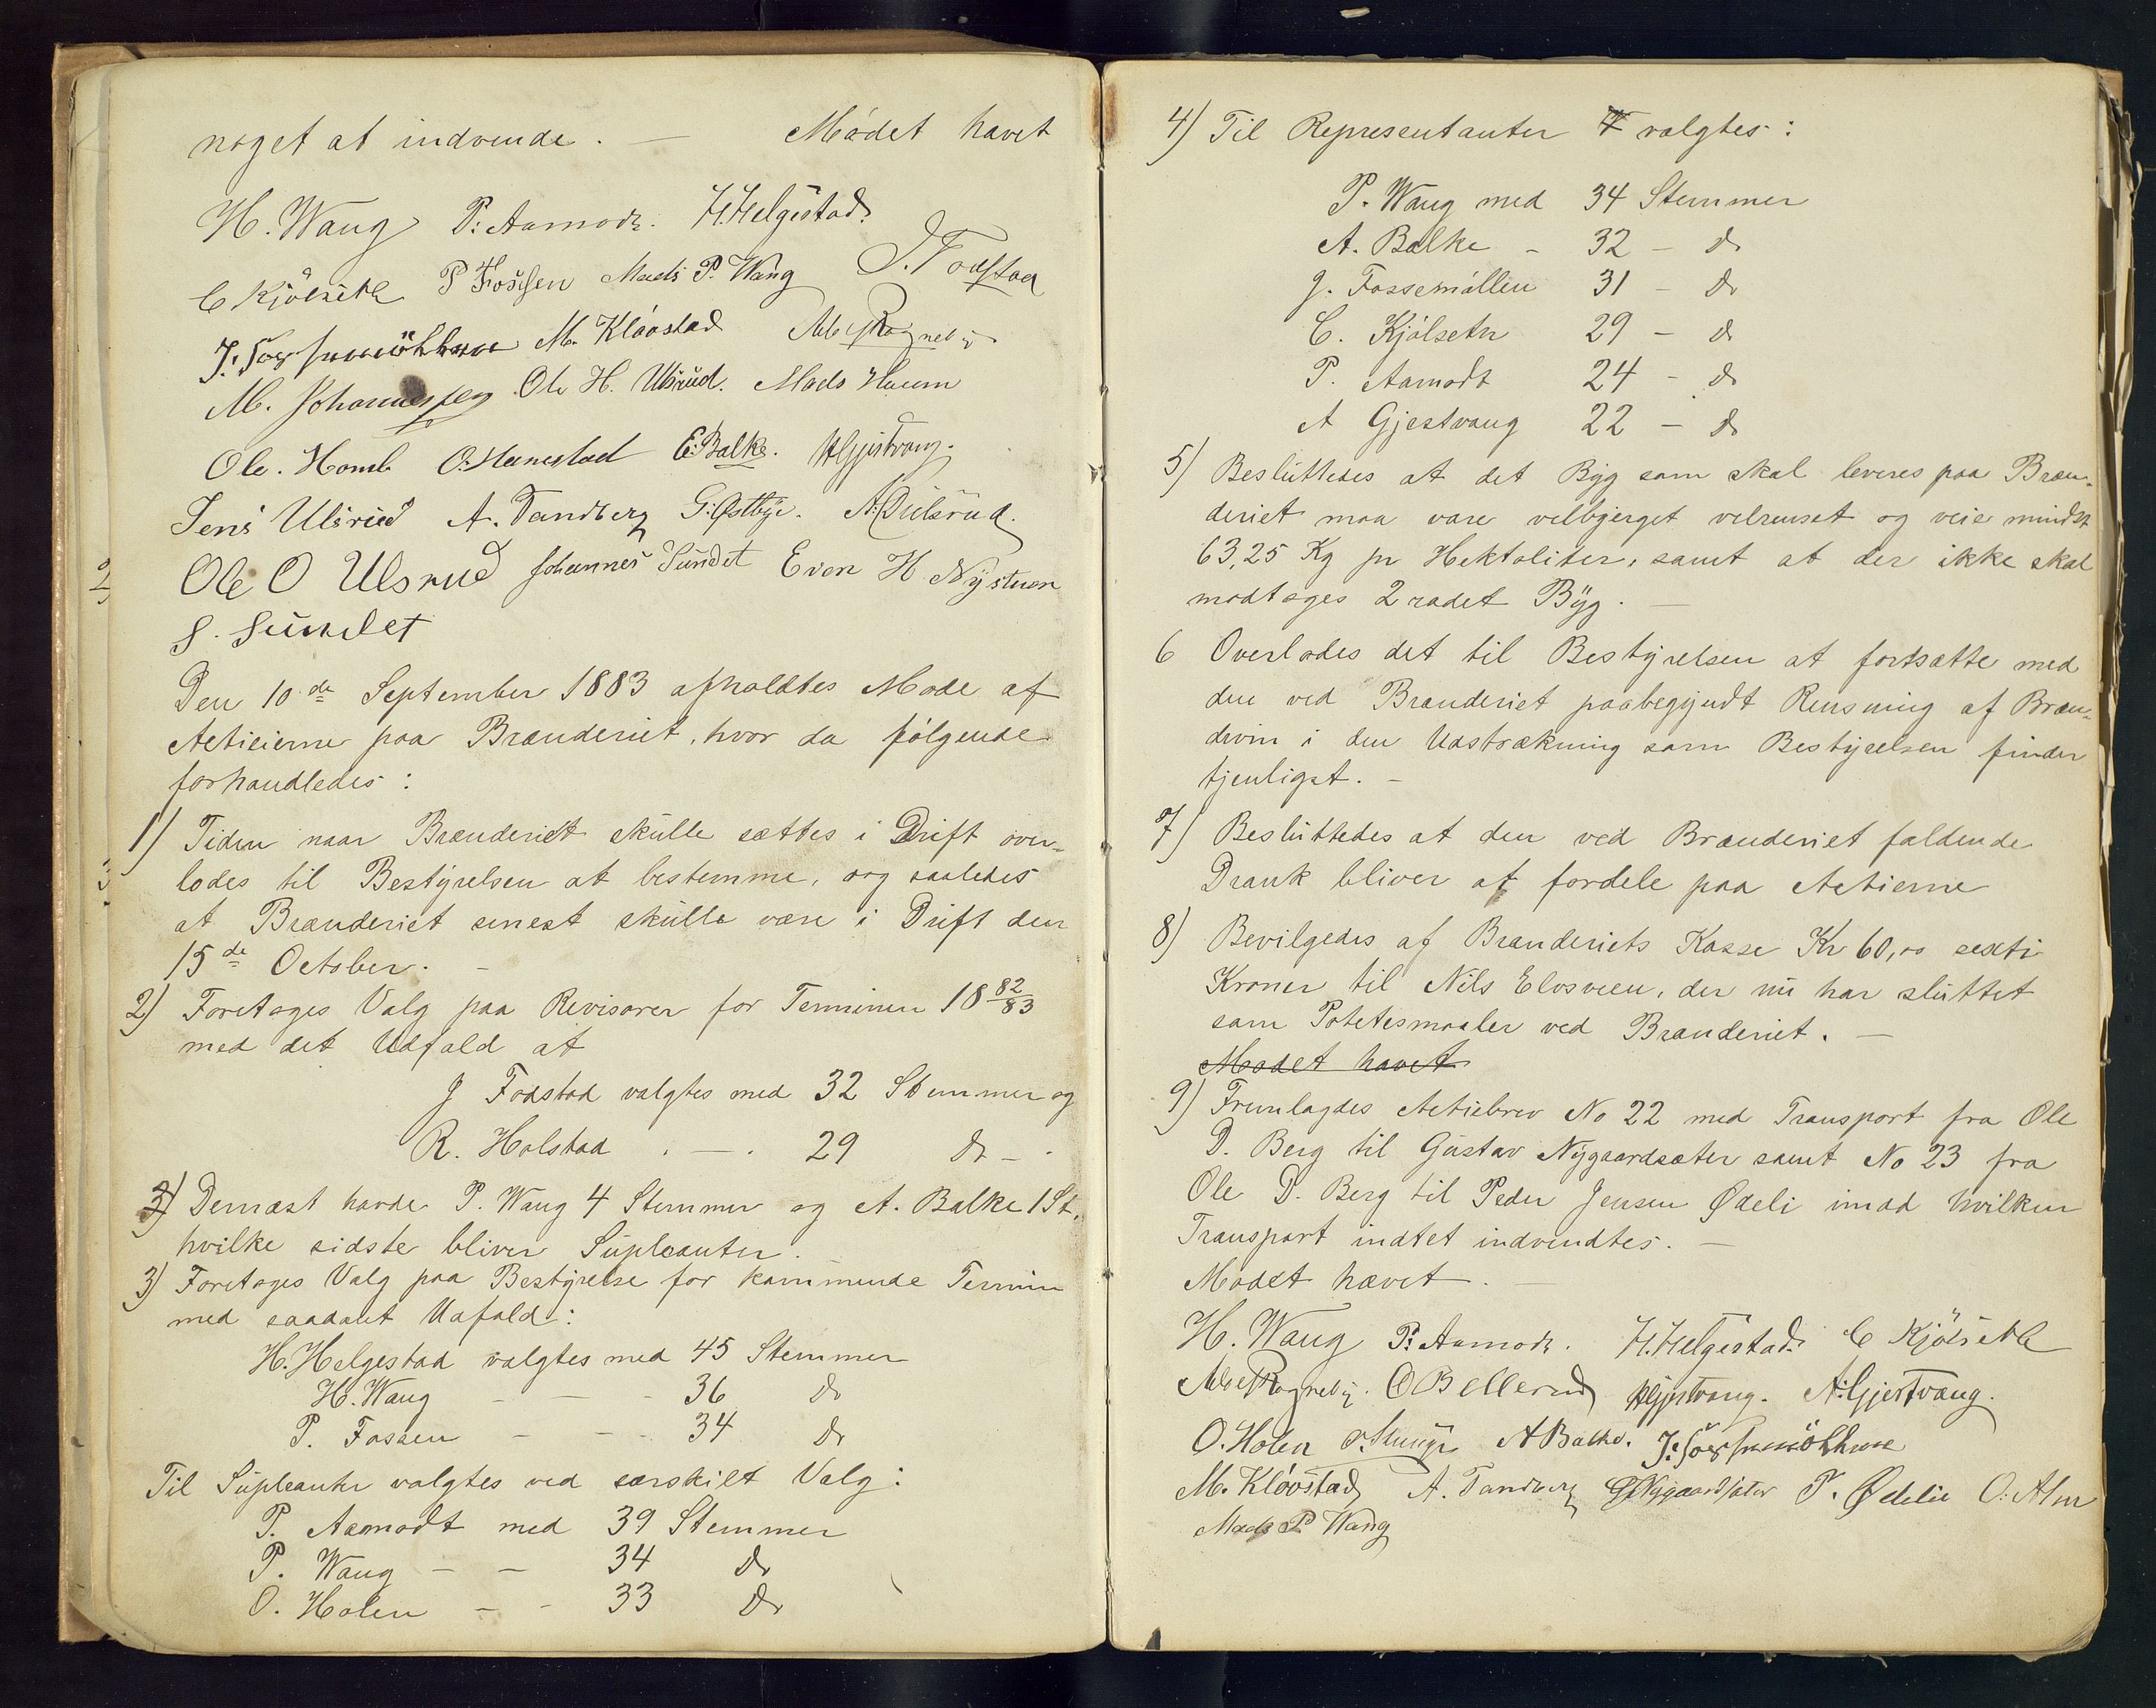 noget at indvende. — Mødet hævet
H. Wang P: Aamodt. H. Helgestad
C Kjölseth P Fossen Mads P. Wang J. Fodstad
J. Fossemöllen M. Kløvstad
M. Johannessen Ole H. Ulsrud. Mads Huum
Ole. Homb O. Hanestad E. Balke. H Gjestvang.
Jens Ulsrud A. Tandberg G. Østbye. A. Dulsrud.
Ole O Ulsrud Johannes Sundet Even H Nystuen
S. Sundet
Den 10de September 1883 afholdtes Møde af
Actieierne paa Brænderiet, hvor da følgende
forhandledes:
1) Tiden naar Brænderiet skulle sættes i Drift over-
lodes til Bestyrelsen at bestemme, og saaledes
at Brænderiet senest skulle være i Drift den
15de October. —
2) Foretoges Valg paa Revisorer for Terminen 18 82/83
med det Udfald at
J Fodstad valgtes med 32 Stemmer og
R. Holstad . — . 29 do — .
3) Dernæst havde P. Wang 4 Stemmer og A. Balke 1 St.
hvilke sidste bliver Supleanter.
3) Foretoges Valg paa Bestyrelse for kommende Termin
med saadant Udfald:
H. Helgestad valgtes med 45 Stemmer
H. Wang — — - 36 do
P. Fossen — — - 34 do
Til Supleanter valgtes ved særskilt Valg:
P. Aamodt med 39 Stemmer
P. Wang — — 34 do
O. Holen — - 33 do
4) Til Representanter valgtes:
P. Wang med 34 Stemmer
A. Balke - 32 — do
J. Fossemøllen 31 — do
C. Kjølseth 29 — do
P. Aamodt 24 - do
A Gjestvang 22 — do
5) Besluttedes at det Byg som skal leveres paa Bræn-
deriet maa være velbjerget velrenset og veie mindst
63,25 Kg pr Hektoliter, samt at der ikke skal
modtages 2 radet Byg. —
6 Overlodes det til Bestyrelsen at fortsætte med
den ved Brænderiet paabegyndt Rensning af Bræn-
devin i den Udstrækning som Bestyrelsen finder
tjenligst. —
7) Besluttedes at den ved Brænderiet faldende
Drank bliver at fordele paa Actierne
8) Bevilgedes af Brænderiets Kasse Kr 60,00 sexti
Kroner til Nils Elosveen, der nu har sluttet
som Potetesmaaler ved Brænderiet. —
Mødet hævet
9) Fremlagdes Actiebrev No 22 med Transport fra Ole
D. Berg til Gustav Nygaardsæter samt No 23 fra
Ole D. Berg til Peder Jensen Ødeli imod hvilken
Transport indtet indvendtes. —
Mødet hævet. —
H. Wang P: Aamodt. H. Helgestad C Kjölseth
O Bellerud H Gjestvang. A. Gjestvang.
O. Holen A Balke. J. Fossemöllen
M. Kløvstad A. Tandberg G Nygaardsæter P. Ødelie O. Alm
Mads P. Wang